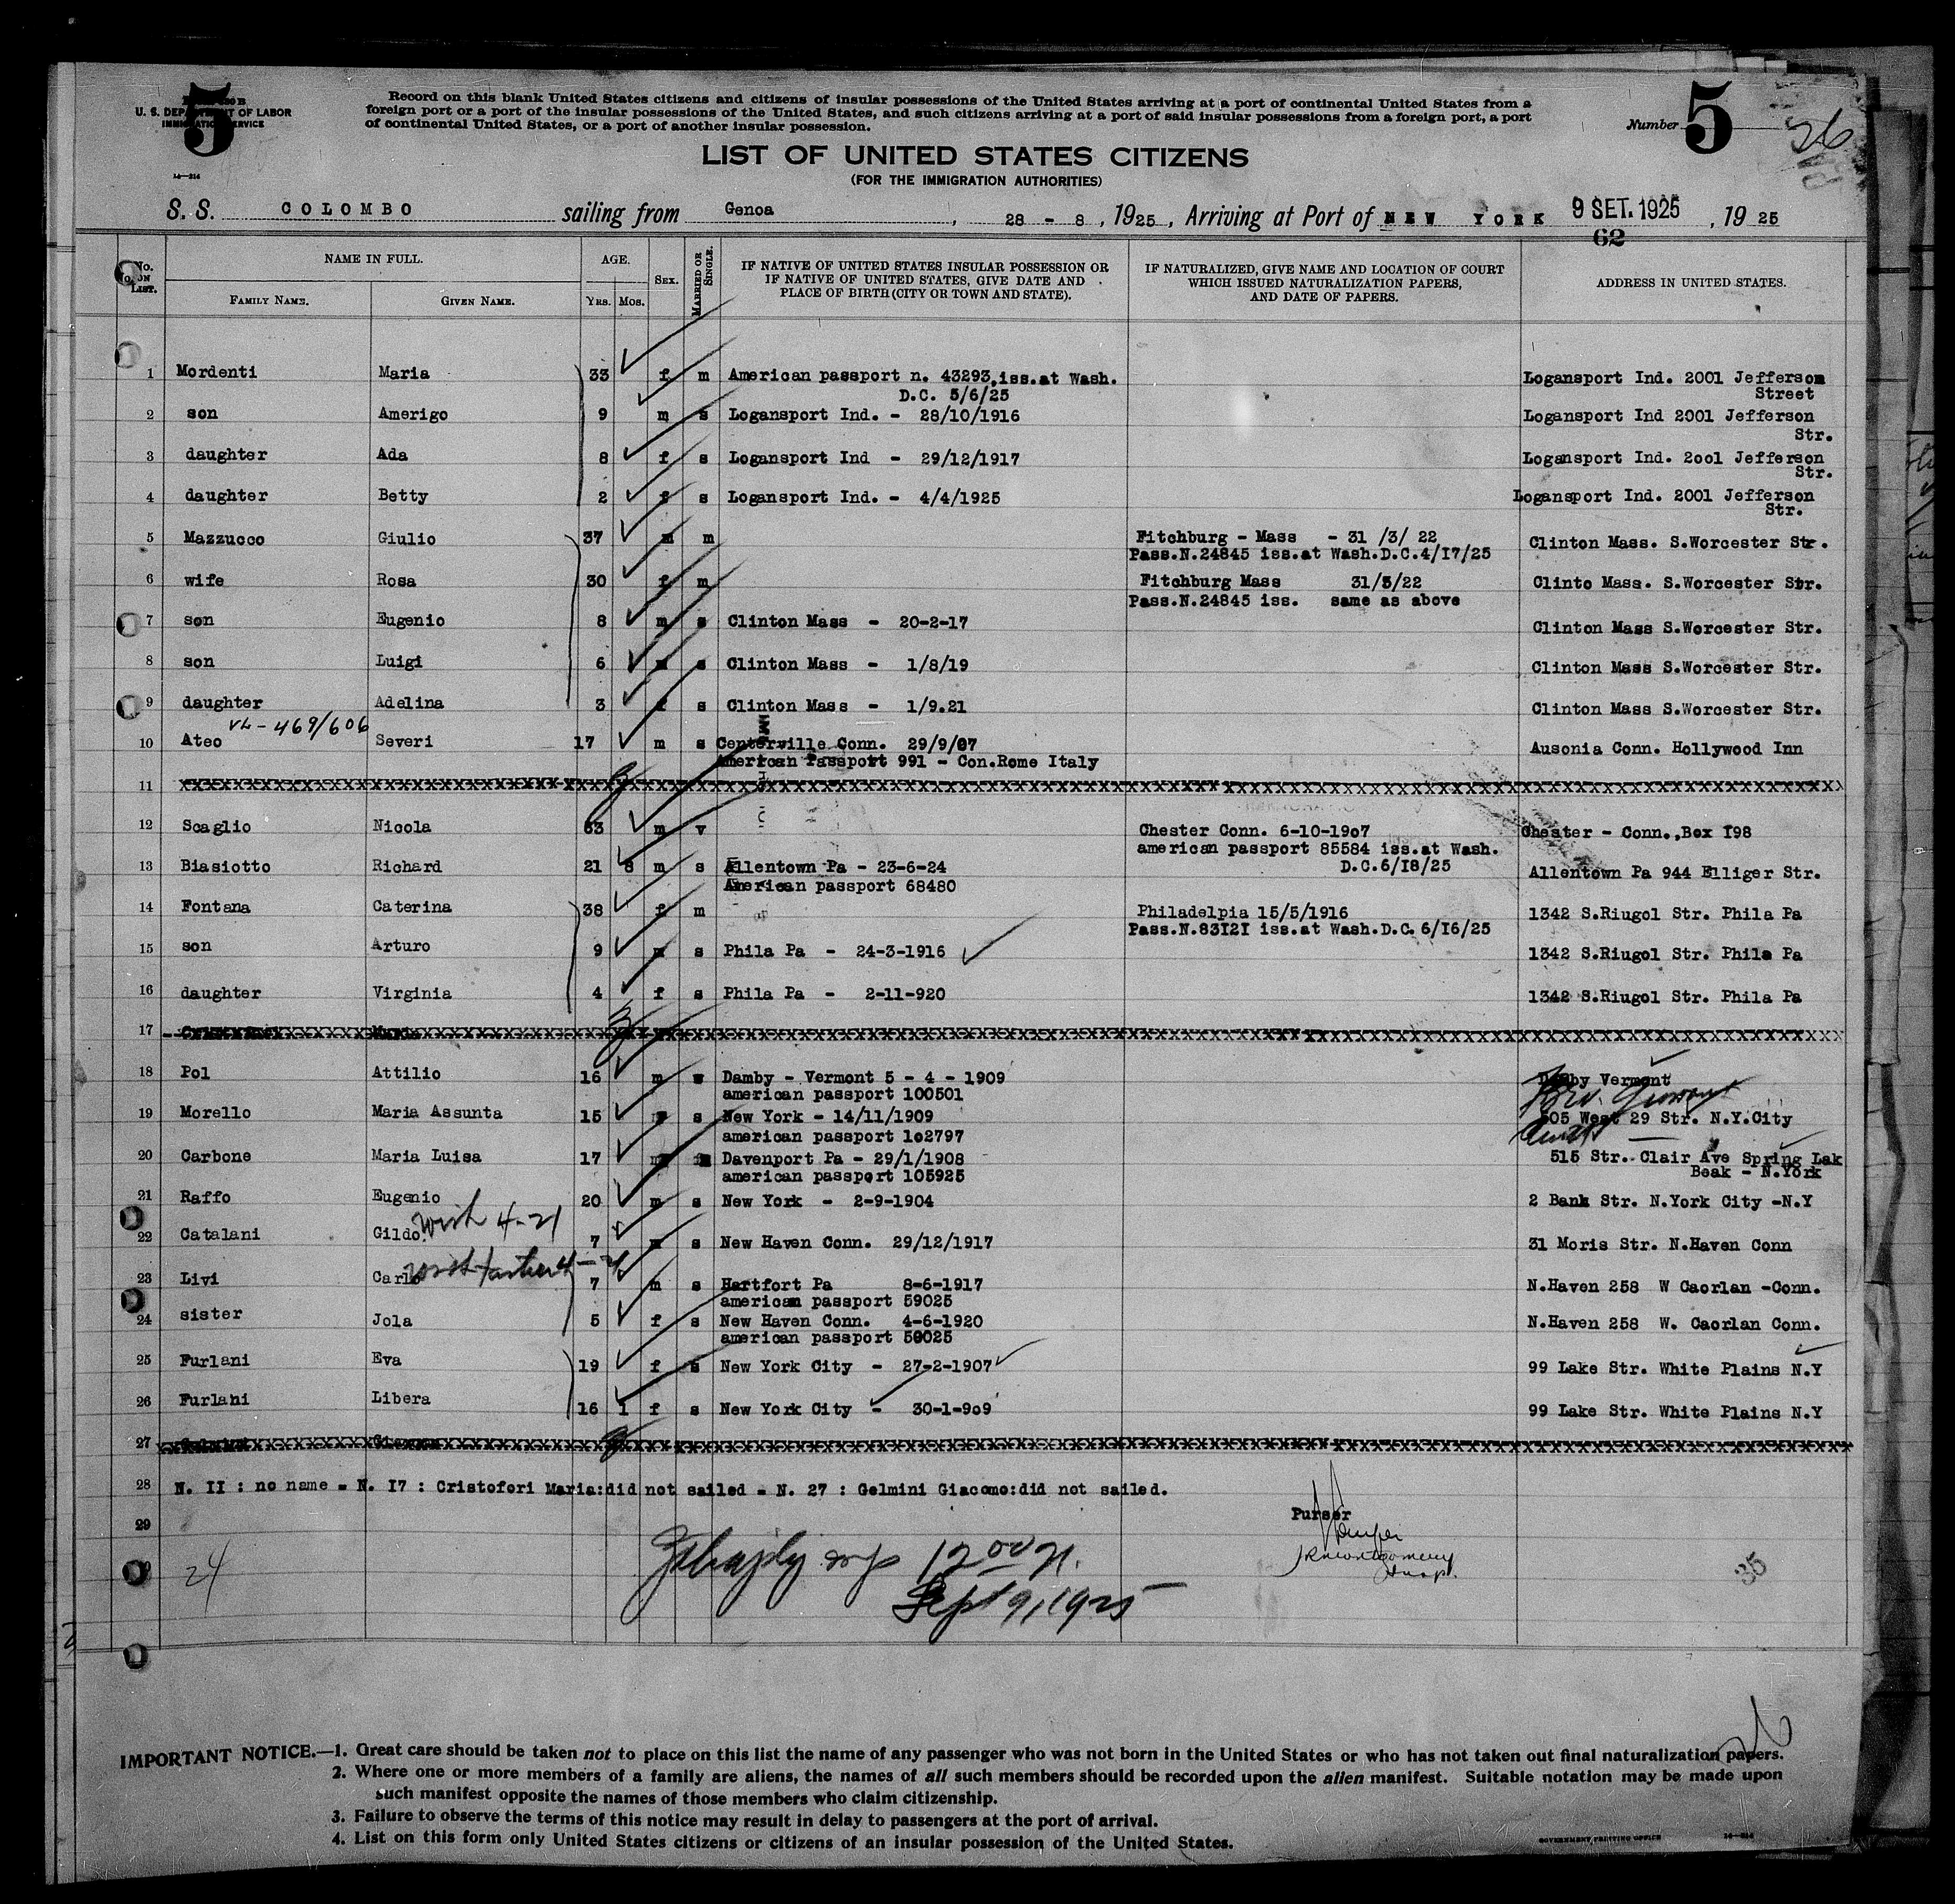 5
U. S. DEPARTMENT OF LABOR
IMMIGRATION SERVICE
14—214
Record on this blank United States citizens and citizens of insular possessions of the United States arriving at a port of continental United States from a
foreign port or a port of the insular possessions of the United States, and such citizens arriving at a port of said insular possessions from a foreign port, a port
of continental United States, or a port of another insular possession.
Number 5
26
LIST OF UNITED STATES CITIZENS
(FOR THE IMMIGRATION AUTHORITIES)
S. S. COLOMBO sailing from Genoa, 28 - 8, 1925, Arriving at Port of NEW YORK 9 SET. 1925, 19 25
62
No. ON LIST. NAME IN FULL. AGE. SEX. MARRIED OR SINGLE. IF NATIVE OF UNITED STATES INSULAR POSSESSION OR IF NATIVE OF UNITED STATES, GIVE DATE AND PLACE OF BIRTH (CITY OR TOWN AND STATE). IF NATURALIZED, GIVE NAME AND LOCATION OF COURT WHICH ISSUED NATURALIZATION PAPERS, AND DATE OF PAPERS. ADDRESS IN UNITED STATES.
FAMILY NAME. GIVEN NAME. YRS. MOS.
1 Mordenti Maria 33 f m American passport n. 43293,iss.at Wash. Logansport Ind. 2001 Jefferson
D.C. 5/6/25 Street
2 son Amerigo 9 m s Logansport Ind. - 28/10/1916 Logansport Ind 2001 Jefferson
Str.
3 daughter Ada 8 f s Logansport Ind - 29/12/1917 Logansport Ind. 2ool Jefferson
Str.
4 daughter Betty 2 f s Logansport Ind. - 4/4/1925 Logansport Ind. 2001 Jefferson
Str.
5 Mazzucco Giulio 37 m m Fitchburg - Mass - 31 /3/ 22 Clinton Mass. S.Worcester Str.
Pass.N.24845 iss.at Wash.D.C.4/17/25
6 wife Rosa 30 f m Fitchburg Mass 31/3/22 Clinto Mass. S.Worcester Str.
Pass.N.24845 iss. same as above
7 son Eugenio 8 m s Clinton Mass - 20-2-17 Clinton Mass S.Worcester Str.
8 son Luigi 6 m s Clinton Mass - 1/8/19 Clinton Mass S.Worcester Str.
9 daughter Adelina 3 f s Clinton Mass - 1/9.21 Clinton Mass S.Worcester Str.
469/606
10 Ateo Severi 17 m s Centerville Conn. 29/9/07 Ausonia Conn. Hollywood Inn
American Passport 991 - Con.Rome Italy
11
12 Scaglio Nicola 63 m v Chester Conn. 6-10-19o7 Chester - Conn.,Box I98
american passport 85584 iss.at Wash.
13 Biasiotto Richard 21 8 m s Allentown Pa - 23-6-24 D.C.6/I8/25 Allentown Pa 944 Elliger Str.
American passport 68480
14 Fontana Caterina 38 f m Philadelpia 15/5/1916 1342 S.Riugol Str. Phila Pa
Pass.N.83I2I iss.at Wash.D.C. 6/I6/25
15 son Arturo 9 m s Phila Pa - 24-3-1916 1342 S.Riugol Str. Phila Pa
16 daughter Virginia 4 f s Phila Pa - 2-11-920 1342 S.Riugol Str. Phila Pa
17 Maria
18 Pol Attilio 16 m s Damby - Vermont 5 - 4 - 1909 Damby Vermont
american passport 100501
19 Morello Maria Assunta 15 s New York - 14/11/1909 505 West 29 Str. N.Y.City
american passport 1o2797
20 Carbone Maria Luisa 17 Davenport Pa - 29/1/1908 515 Str. Clair Ave Spring Lak
american passport 105925 Beak - N.York
21 Raffo Eugenio 20 m s New York - 2-9-1904 2 Bank Str. N.York City -N.Y
with 4-21
22 Catalani Gildo 7 m s New Haven Conn. 29/12/1917 31 Moris Str. N.Haven Conn
23 Livi Carlo 7 m s Hartfort Pa 8-6-1917 N.Haven 258 W Caorlan -Conn.
american passport 59025
24 sister Jola 5 f s New Haven Conn. 4-6-1920 N.Haven 258 W. Caorlan Conn.
american passport 59025
25 Furlani Eva 19 f s New York City - 27-2-1907 99 Lake Str. White Plains N.Y
26 Furlani Libera 16 1 f s New York City - 30-1-9o9 99 Lake Str. White Plains N.Y
27
28 N. II : no name = N. I7 : Cristofori Maria:did not sailed = N. 27 : Gelmini Giacomo:did not sailed.
29 Purser
24
12 00
Sept 9, 1925
JRMontgomery
Insp.
35
26
IMPORTANT NOTICE.—1. Great care should be taken not to place on this list the name of any passenger who was not born in the United States or who has not taken out final naturalization papers.
2. Where one or more members of a family are aliens, the names of all such members should be recorded upon the alien manifest. Suitable notation may be made upon
such manifest opposite the names of those members who claim citizenship.
3. Failure to observe the terms of this notice may result in delay to passengers at the port of arrival.
4. List on this form only United States citizens or citizens of an insular possession of the United States.
GOVERNMENT PRINTING OFFICE 14—214